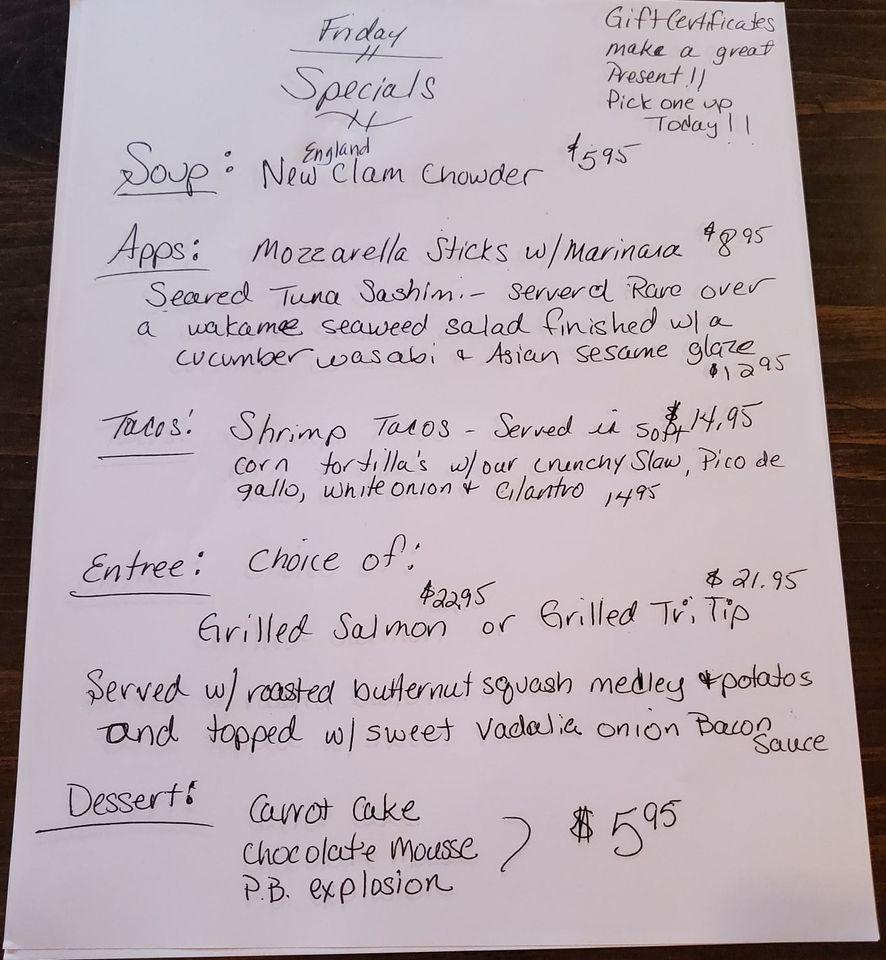 Friday
Specials
Gift Certificates
make a great
Present!!
Pick one up
Today!!
Soup: New England Clam Chowder $5.95
Apps: Mozzarella Sticks w/Marinara $8.95
Seared Tuna Sashimi - serverd Rare over
a wakame seaweed salad finished w/ a
cucumber wasabi & Asian sesame glaze
$12.95
Tacos: Shrimp Tacos - Served in soft $14.95
corn tortilla's w/our crunchy Slaw, Pico de
gallo, white onion & Cilantro 14.95
Entree: Choice of:
$22.95 $21.95
Grilled Salmon or Grilled Tri Tip
Served w/ roasted butternut squash medley & potatos
and topped w/ sweet Vadalia onion Bacon
Sauce
Dessert: Carrot Cake
Chocolate Mousse ) $5.95
P.B. explosion